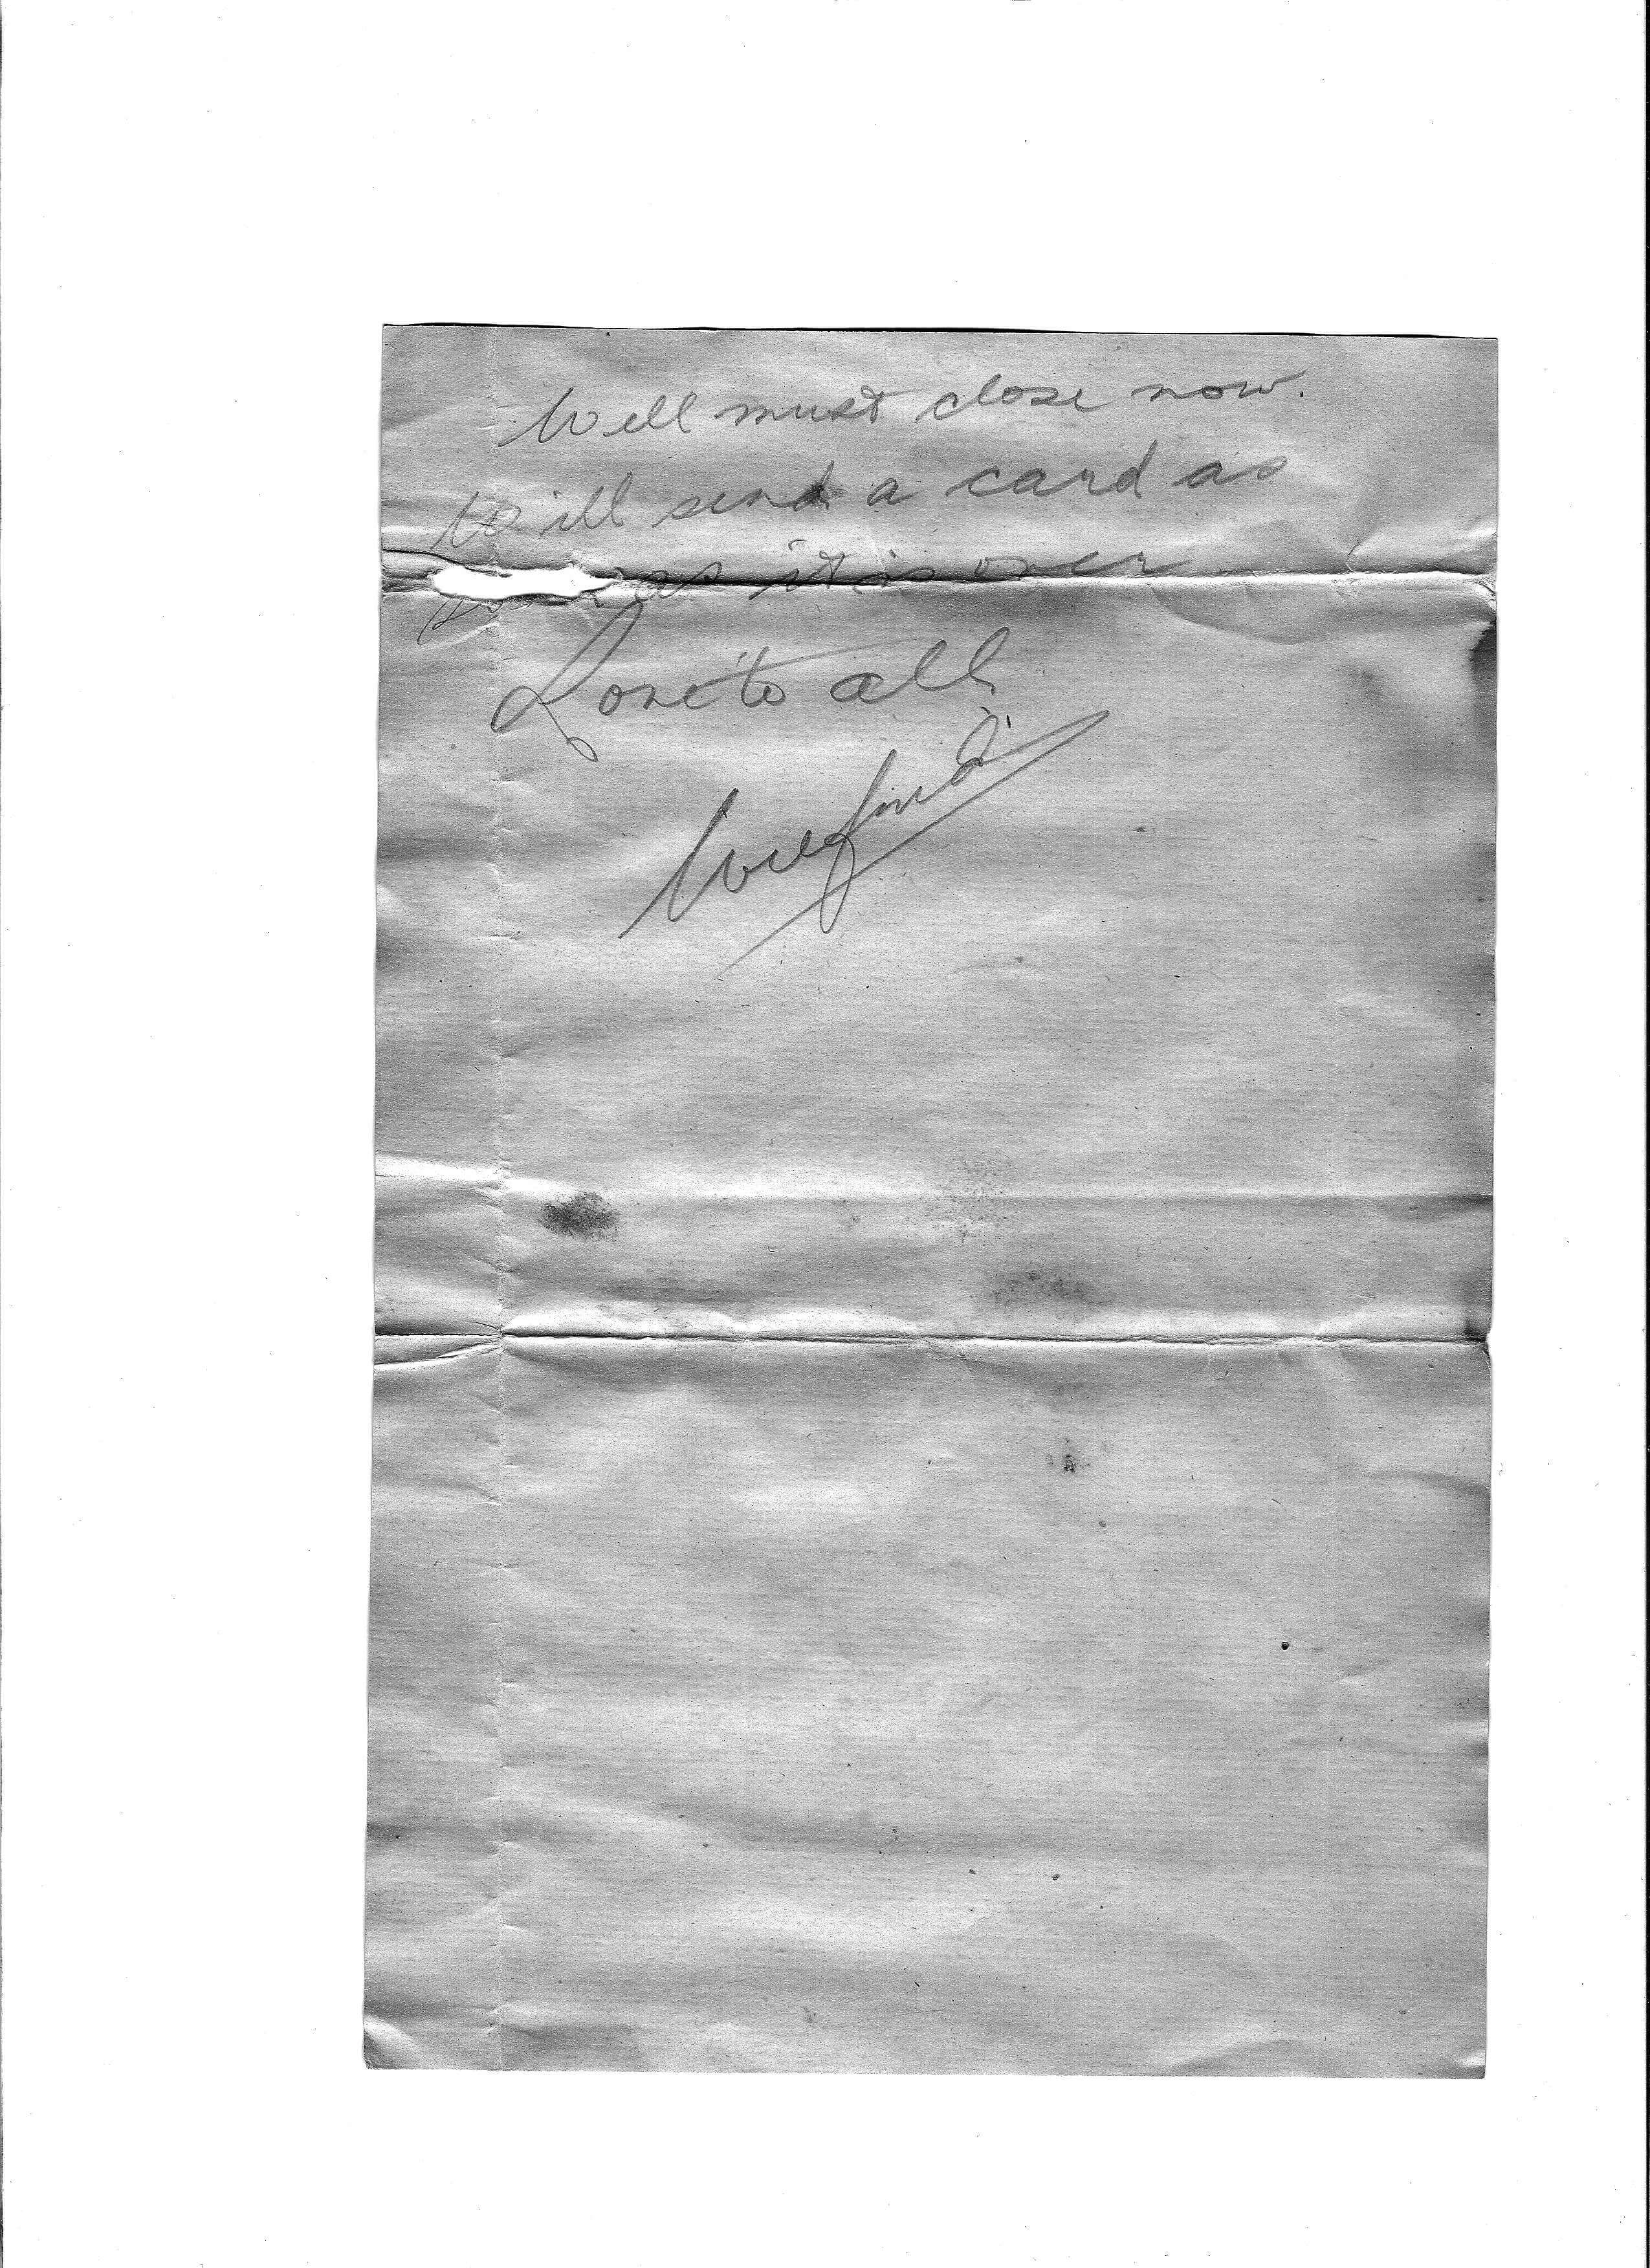 Well must close now.
Will send a card as
as it is over
Love to all
Wilford